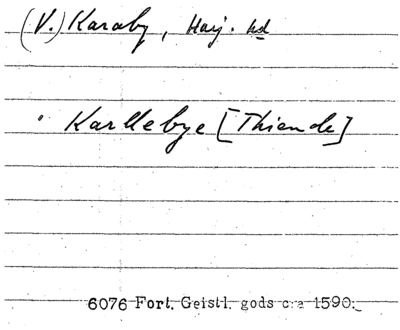 (V.) Karaby, Harj. hd
Karllebye [Thiende]
6076 Fort. Geistl. gods c:a 1590.